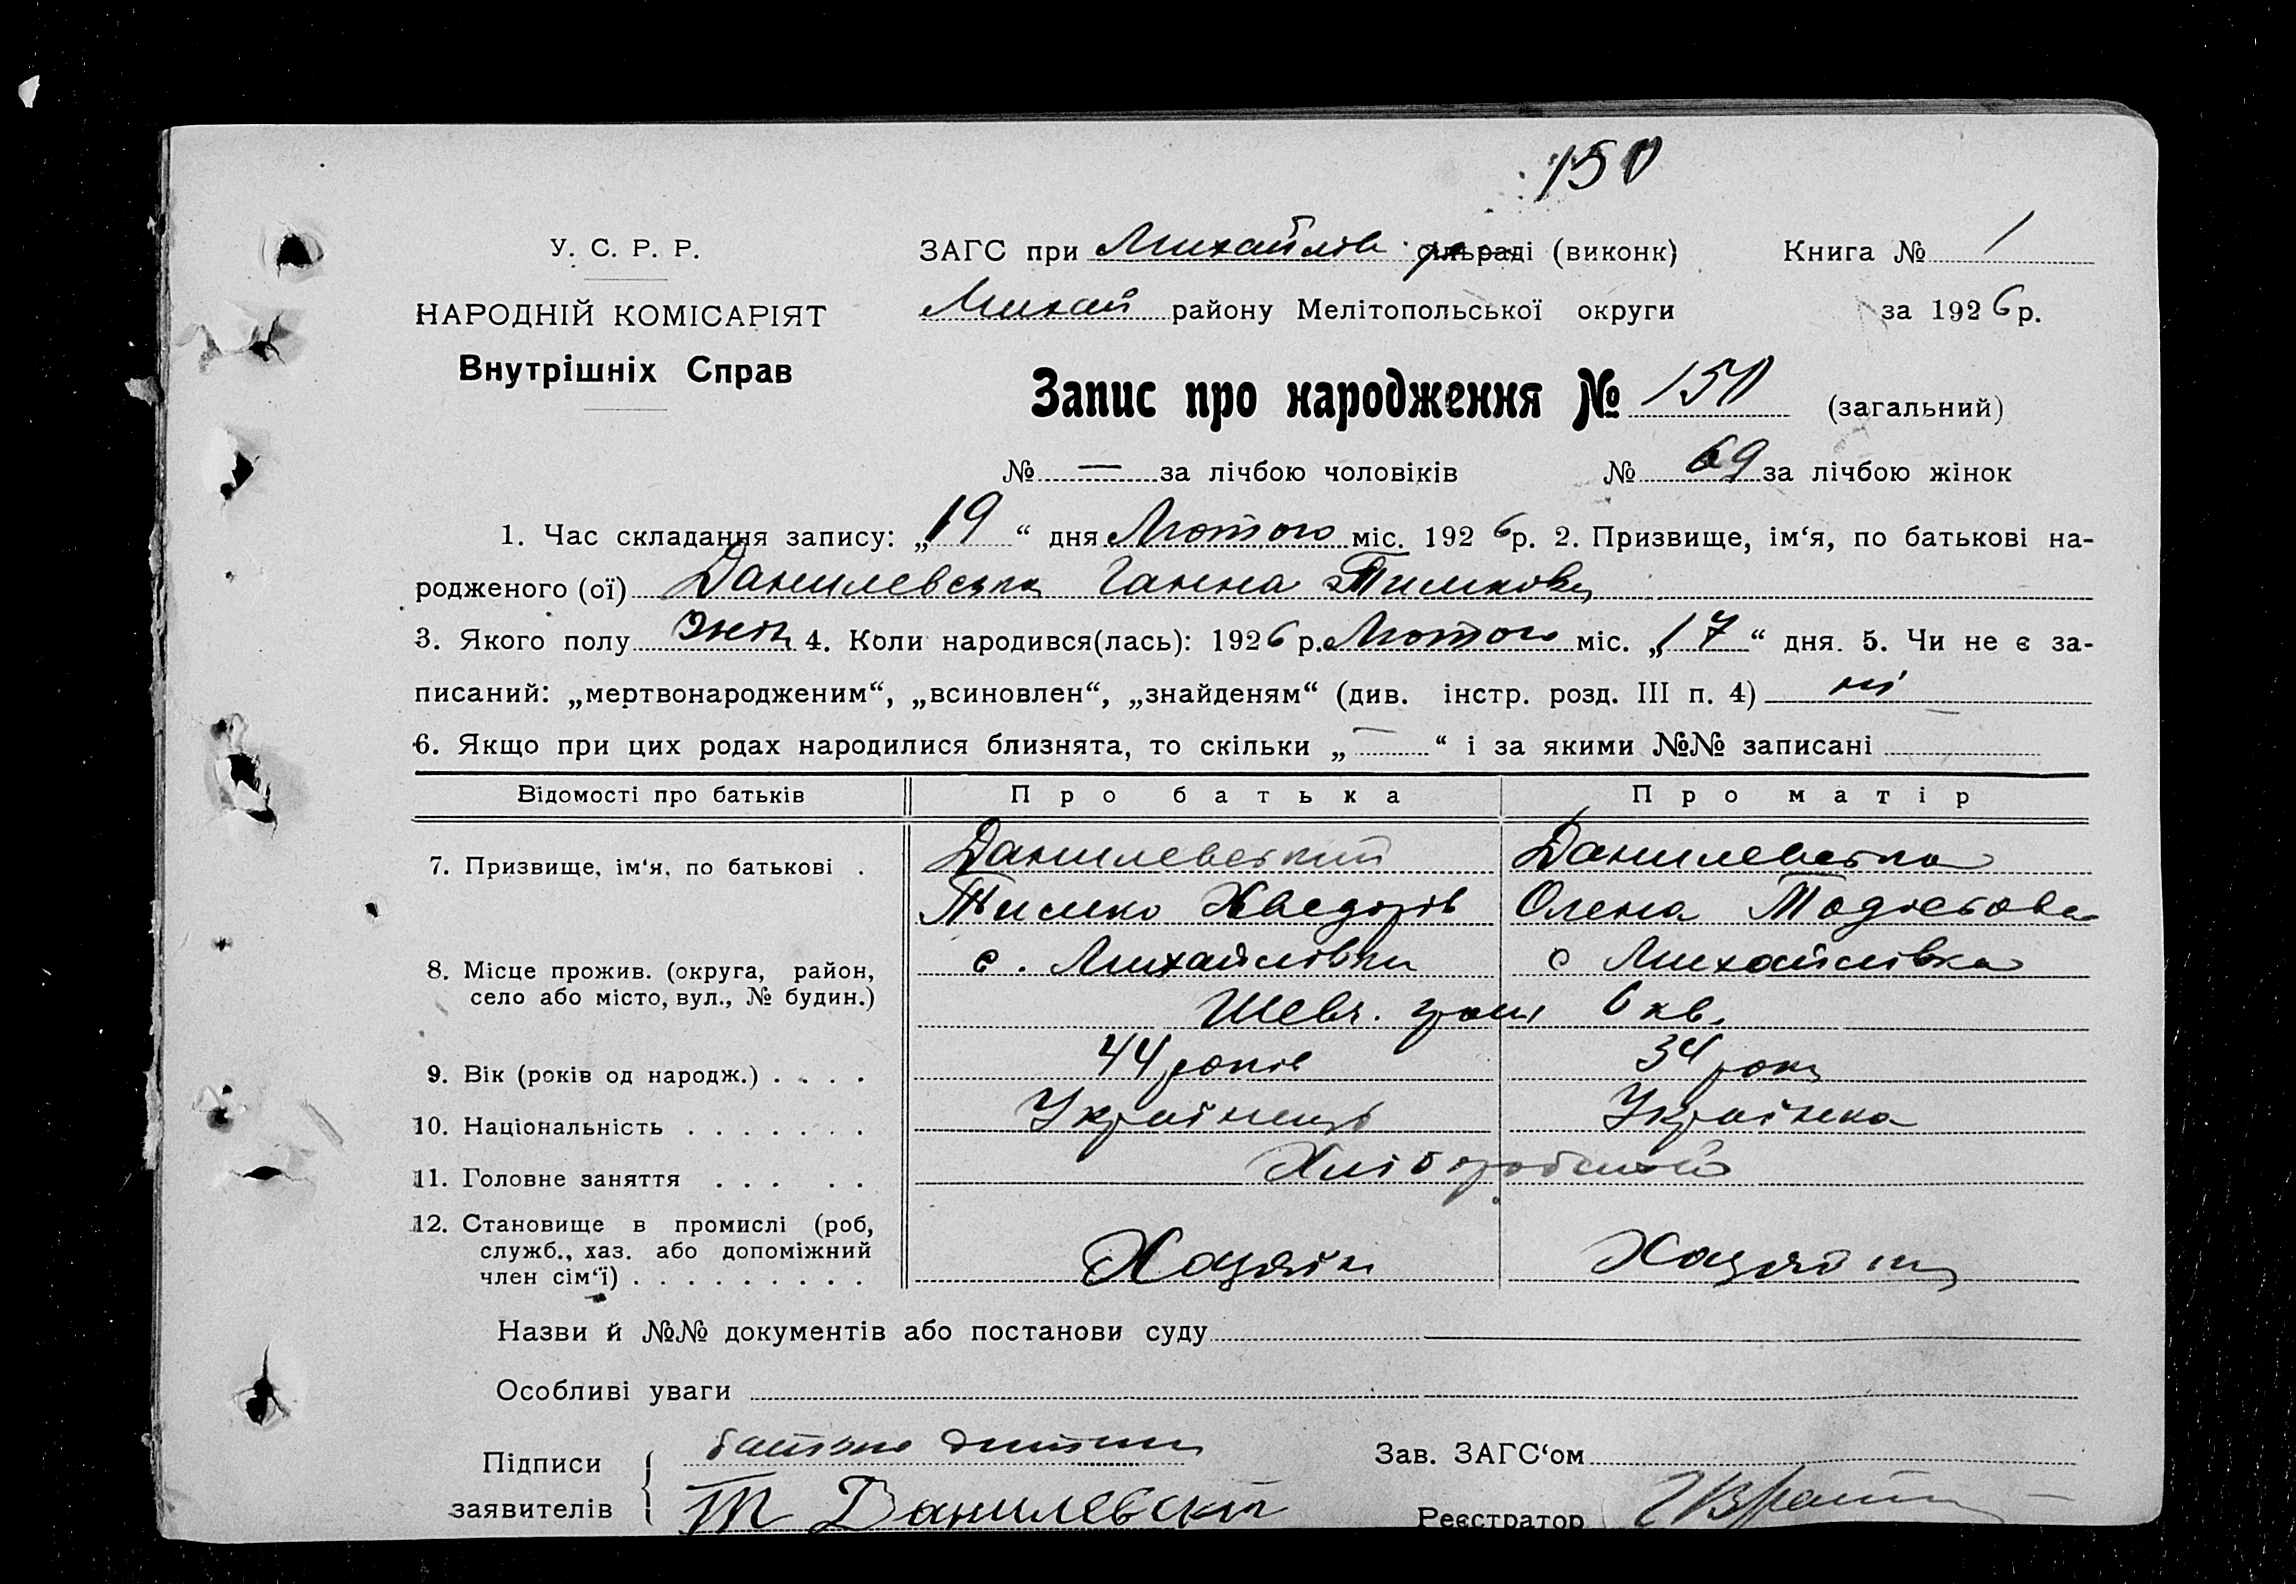 150
У. С. Р. Р.
НАРОДНІЙ КОМІСАРІЯТ
Внутрішніх Справ
ЗАГС при Михайлів сільраді (виконк) Книга № 1
Михай району Мелітопольської округи за 1926 р.
Запис про народження № 150 (загальний)
№ — за лічбою чоловіків № 69 за лічбою жінок
1. Час складання запису: „19“ дня Лютого міс. 1926 р. 2. Призвище, ім‘я, по батькові на-
родженого (ої) Данилевська Ганна Тимкова
3. Якого полу жін 4. Коли народився(лась): 1926 р. Лютого міс. „17“ дня. 5. Чи не є за-
писаний: „мертвонародженим“, „всиновлен“, „знайденям“ (див. інстр. розд. III п. 4) ні
6. Якщо при цих родах народилися близнята, то скільки „—“ і за якими №№ записані
Відомості про батьків Про батька Про матір
7. Призвище, ім‘я, по батькові . Данилевський Данилевська
Тимко Хведорів Олена Тодосова
8. Місце прожив. (округа, район, с. Михайлівка с Михайлівка
село або місто, вул., № будин.) Шевч. гром 6 кв.
9. Вік (років од народж.) . . . . 44 років 34 роки
10. Національність . . . . . . . Українець Українка
11. Головне заняття . . . . . Хлібороби
12. Становище в промислі (роб,
служб., хаз. або допоміжний
член сім‘ї) . . . . . . . . . Хазяїн Хазяйка
Назви й №№ документів або постанови суду
Особливі уваги
Підписи батько дитини Зав. ЗАГС‘ом
заявителів Т Данилевскій Реєстратор